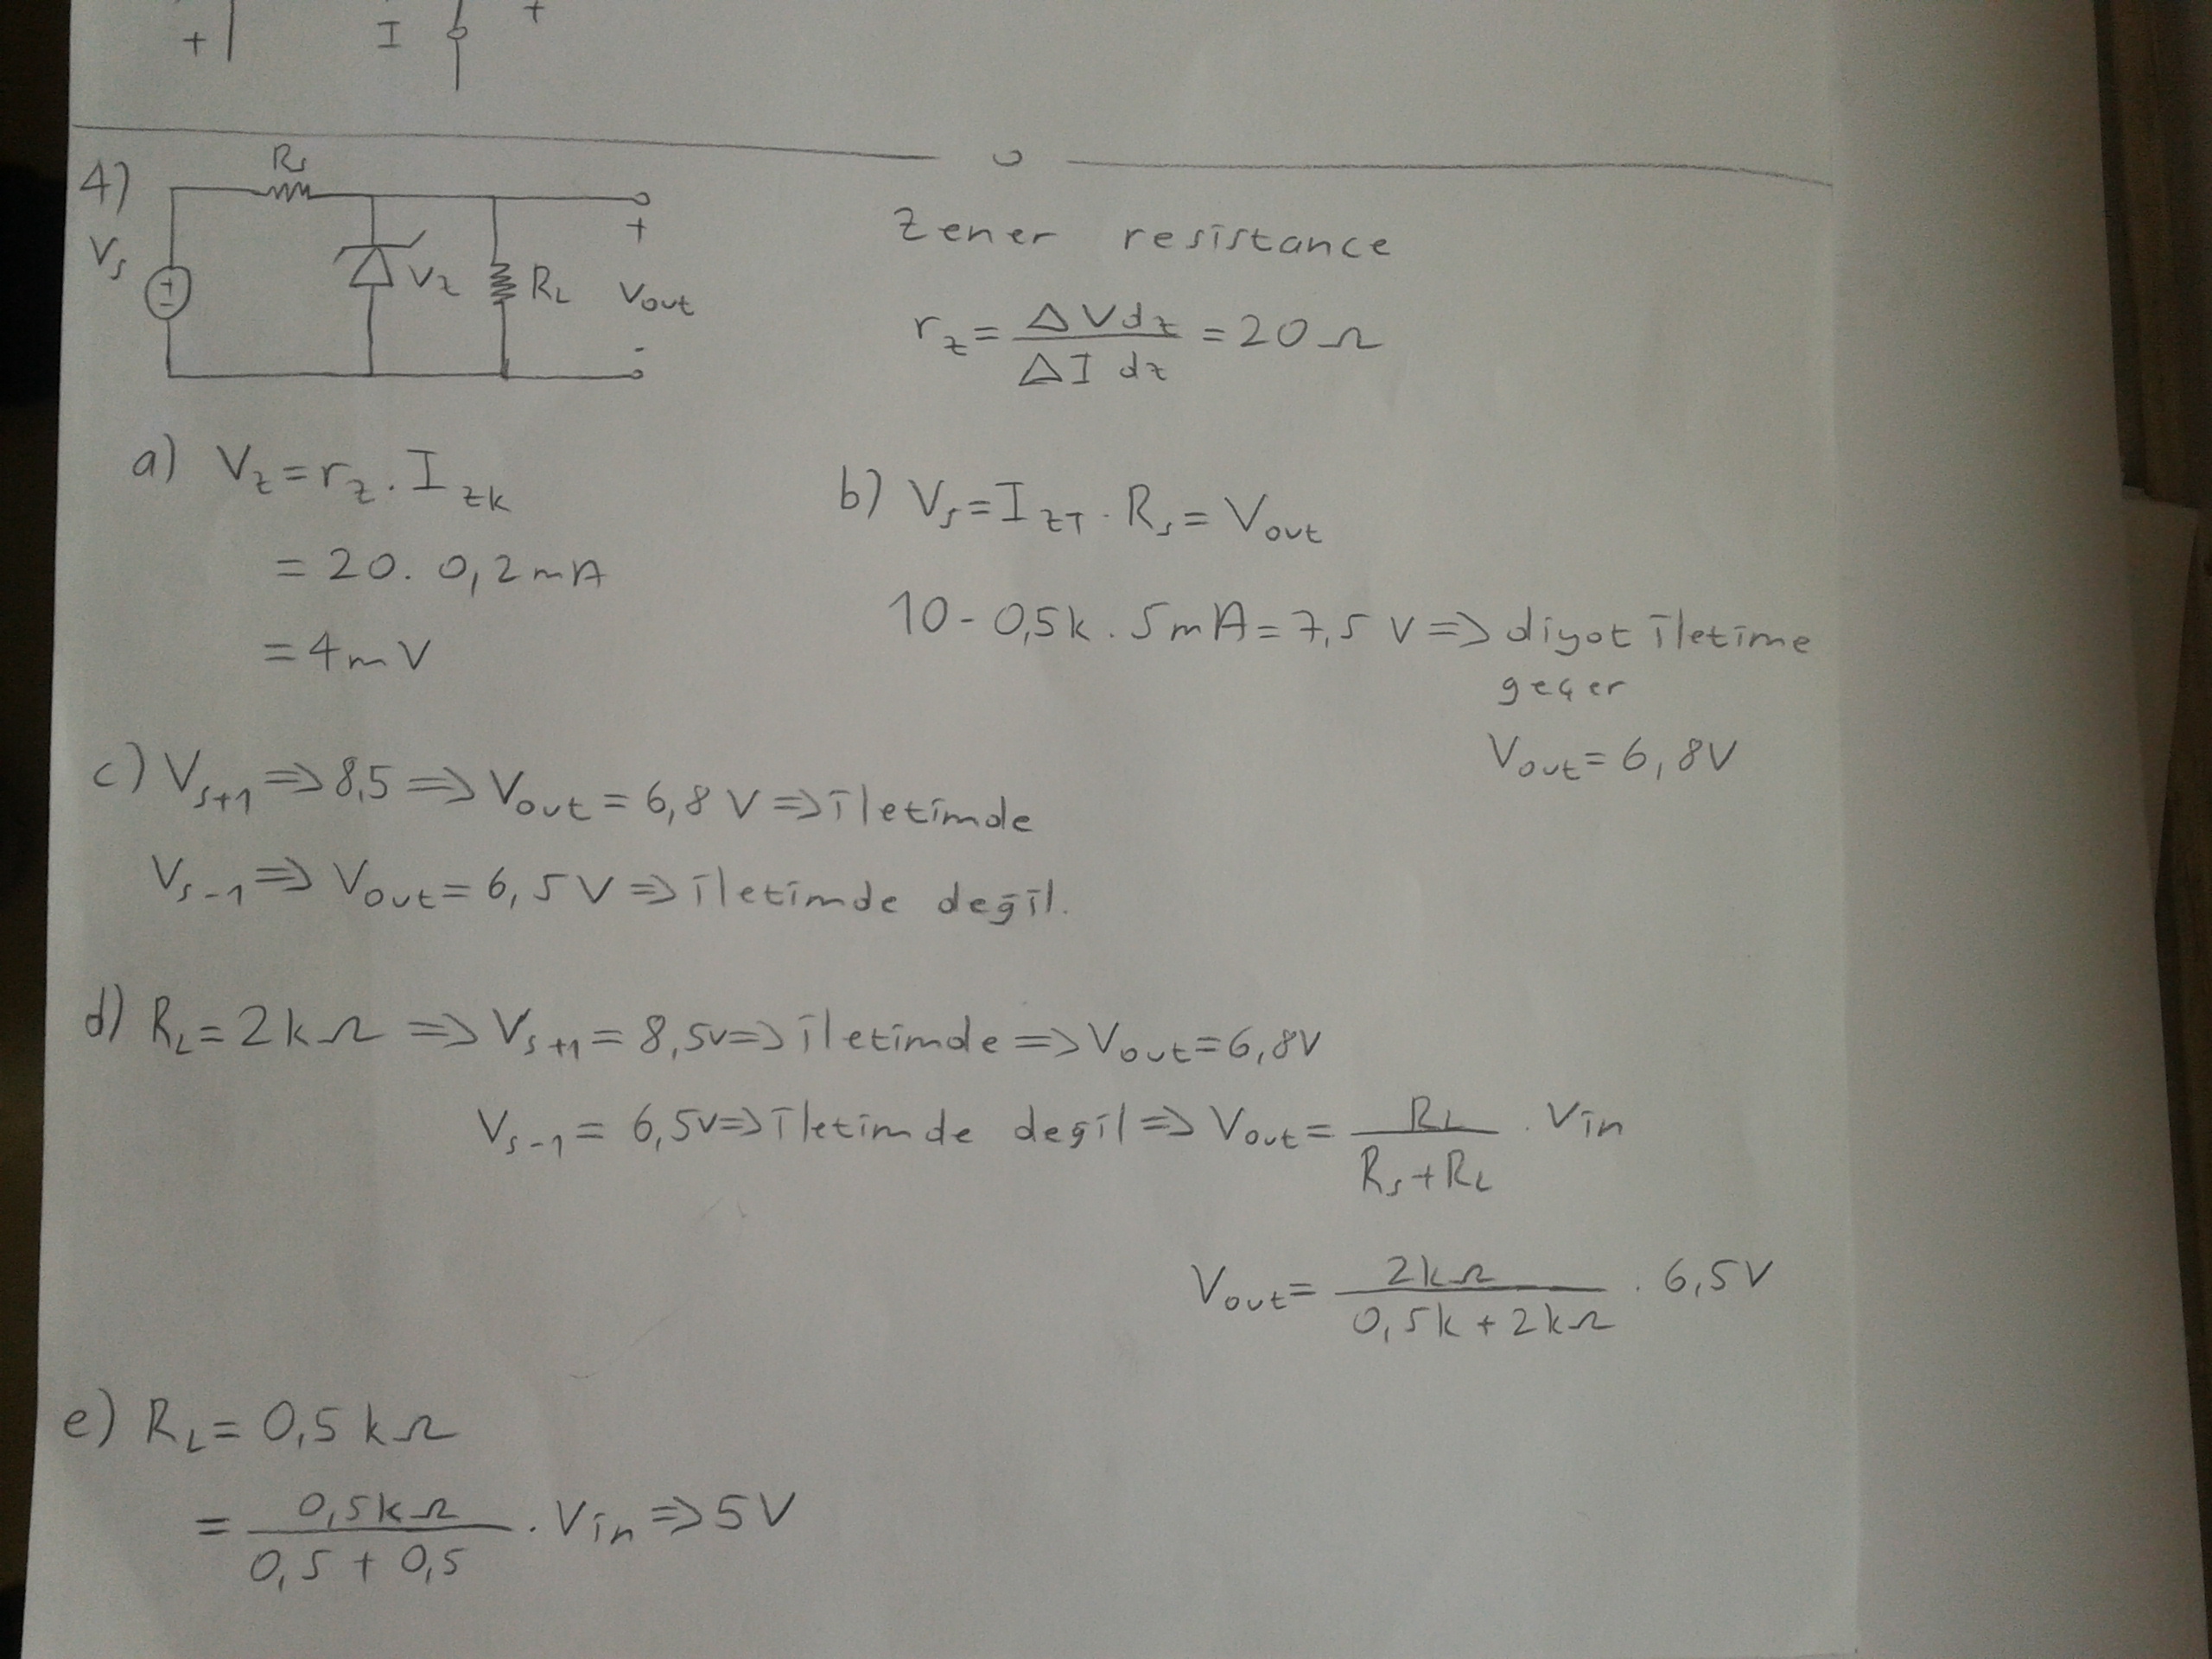 + I +
4) Rs
Vs Vz RL + Vout -
Zener resistance
rz = ΔVdz / ΔI dz = 20 Ω
a) Vz = rz . Izk
= 20. 0,2mA
= 4mV
b) Vs = IzT . Rs = Vout
10 - 0,5k . 5mA = 7,5 V => diyot iletime
geçer
Vout = 6,8V
c) Vs+1 => 8,5 => Vout = 6,8 V => iletimde
Vs-1 => Vout = 6,5 V => iletimde değil.
d) RL = 2kΩ => Vs+1 = 8,5v => iletimde => Vout = 6,8V
Vs-1 = 6,5v => iletimde değil => Vout = RL / Rs + RL . Vin
Vout = 2kΩ / 0,5k + 2kΩ . 6,5V
e) RL = 0,5 kΩ
= 0,5kΩ / 0,5 + 0,5 . Vin => 5V